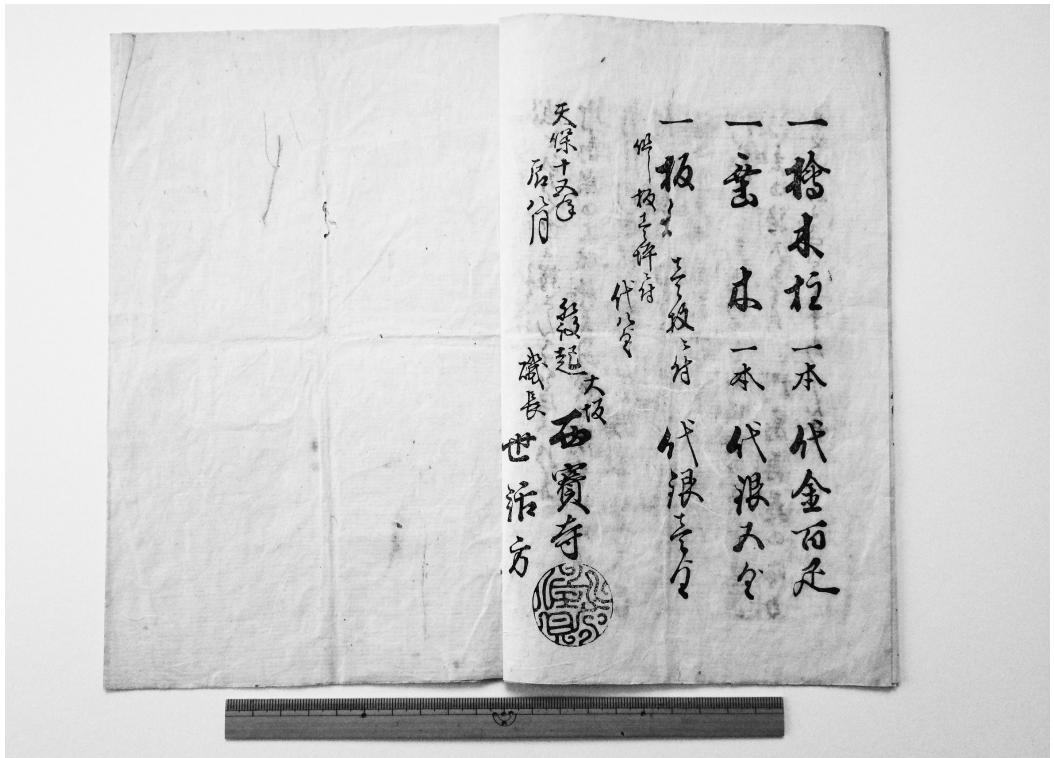 一 檜木柱 一本 代金百疋
一 垂木 一本 代銀五匁
一 板 壱坂ニ付 代銀壱匁
但シ板壱坪ニ付
代八匁
天保十五年
辰八月
發起
大坂
西寳寺
磯長
世話方